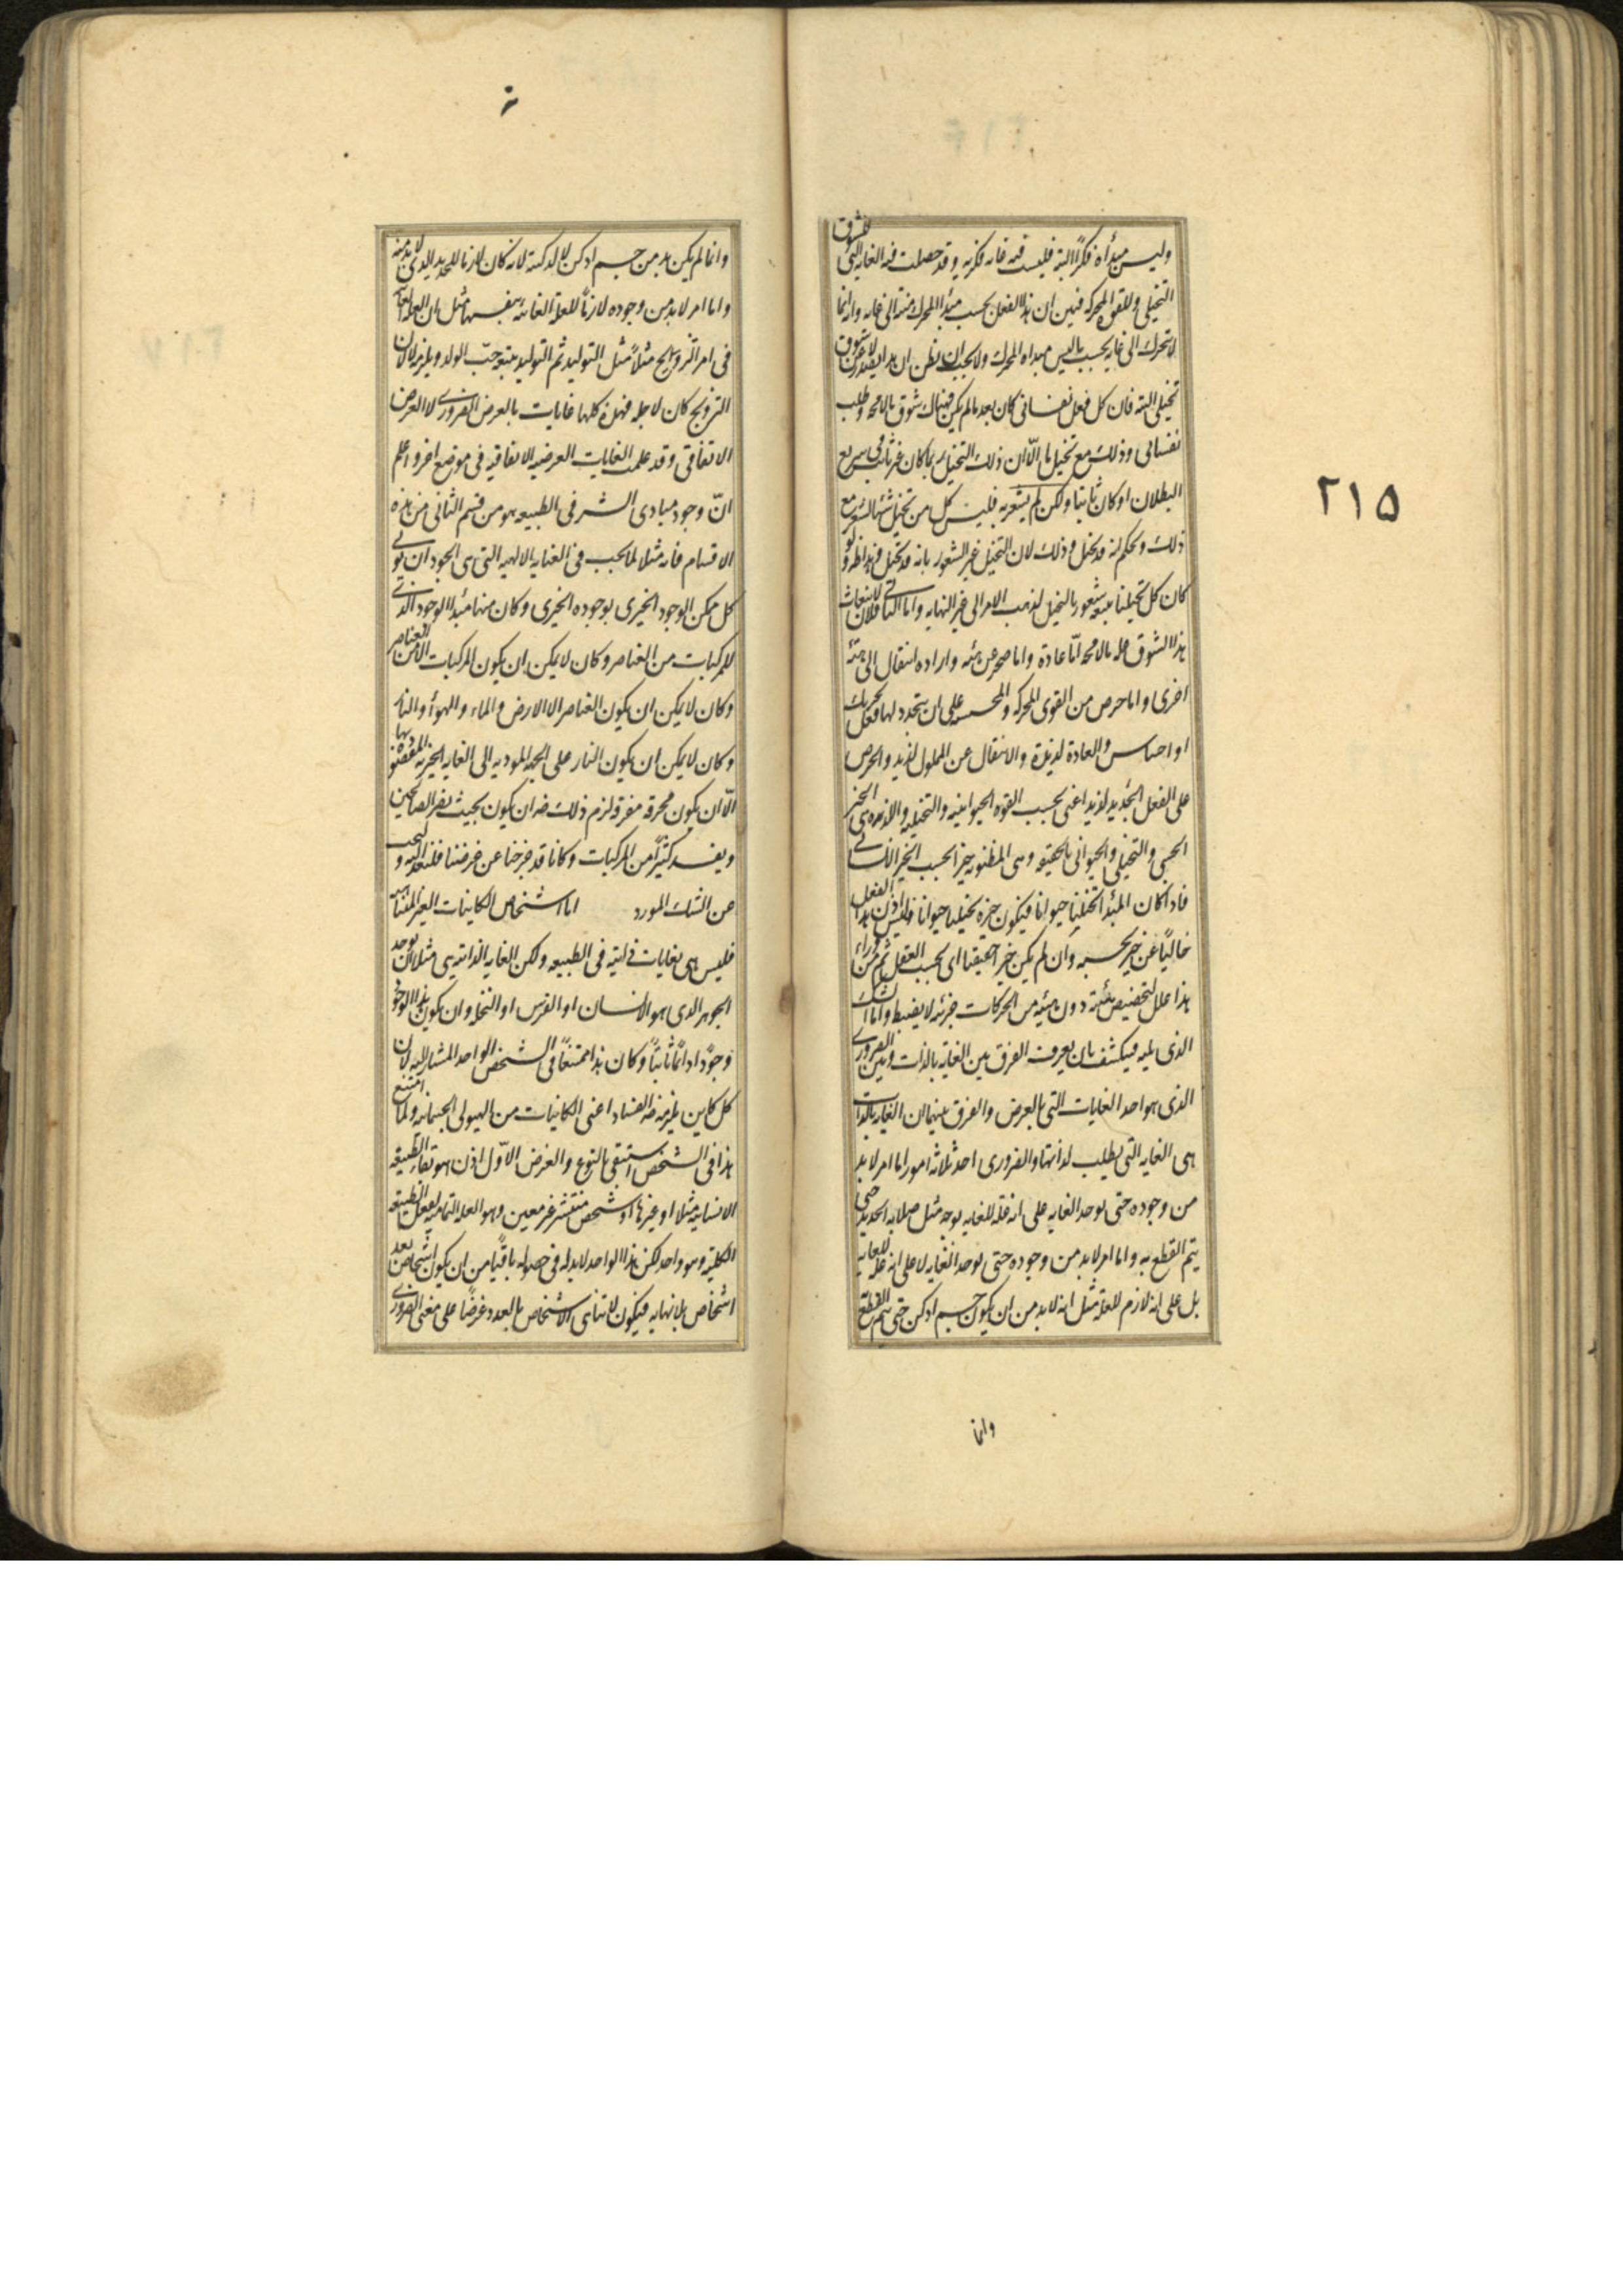 وليس مبدأه فكرًا البته فليست فيه غايه فكريه وقد حصلت فيه الغايه التى للشوق
التخيلى وللقوه المحركه فبين ان هذا الفعل بحسب مبدأ المحرك منته الى غايه وانه انما
لا يتحرك الى غايه بحسب ما ليس مبداه المحرك ولا يجب ان يظن ان هذا يصدر لا عن شوق
تخيلى البته فان كل فعل نفسانى كان بعد ما لم يكن فهناك شوق ما لا محه وطلب
نفسانى وذلك مع تخيل ما الّا ان ذلك التخيل ربما كان غير ثابت بل سريع
البطلان او كان ثابتا ولكن لم يشعر به فليس كل من تخيل شيئا شعر مع
ذلك وحكم انه قد تخيل وذلك لان التخيل غير الشعور بانه قد تخيل وهذا ظ ولو
كان كل تخيل يتبعه شعور بالتخيل لذهب الامر الى غير النهايه واما الثانى فلان لانبعاث
هذا الشوق عله ما لا محه امّا عادة واما ضجر عن هيئه واراده انتقال الى هيئة
اخرى واما حرص من القوى المحركه والمحسه على ان يتجدد لها فعل تحريك
او احساس والعادة لذيذة والانتقال عن المملول لذيذ والحرص
على الفعل الجديد لذيذ اعنى بحسب القوه الحيوانيه والتخيليه واللذه هى الخير
الحسى والتخيلى والحيوانى بالحقيقه وهى المظنونه خيرا بحسب الخير الانسانى
فاذا كان المبدأ تخيليا حيوانيا فيكون خيره تخيليا حيوانيا فليس اذن هذا الفعل
خاليًا عن خير بحسبه وان لم يكن خيرا حقيقيا اى بحسب العقل ثم من وراء
هذا علل لتخصيص هيئة دون هيئه من الحركات جزئيه لا يضبط واما الشك
الذى يليه فيكشف بان يعرف الفرق بين الغايه بالذات وبين الضرورى
الذى هو احد الغايات التى بالعرض والفرق بينهما ان الغايه بالذات
هى الغايه التى يطلب لذاتها والضرورى احد ثلاثه امور اما امر لا بد
من وجوده حتى يوجد الغايه على انه علة للغايه بوجه مثل صلابه الحديد حتى
يتم القطع به واما امر لا بد من وجوده حتى يوجد الغايه لا على انه علة للغايه
بل على انه لازم للعلة مثل انه لا بد من ان يكون جسم ادكن حتى يتم القطع
وانما
٢١٥
وانما لم يكن بد من جسم ادكن لا لدكنته لانه كان لازما للحديد الذى لا بد منه
واما امر لا بد من وجوده لازمًا للعلة الغائيه نفسها مثل ان العله الغائيه
فى امر التزويج مثلًا مثل التوليد ثم التوليد يتبعه حبّ الولد ويلزمه لان
التزويج كان لاجله فهذه كلها غايات بالعرض الضرورى لا العرض
الاتفاقى وقد علمت الغايات العرضيه الاتفاقيه فى موضع اخر واعلم
انّ وجود مبادى الشر فى الطبيعه هو من قسم الثانى من هذه
الاقسام فانه مثلا لما يجب فى العنايه الالهيه التى هى الجود ان يؤتى
كل ممكن الوجود الخيرى بوجوده الخيرى وكان منها مبدأ الوجود الذى
للمركبات من العناصر وكان لا يمكن ان يكون المركبات الا من العناصر
وكان لا يمكن ان يكون العناصر الا الارض والماء والهوأ والنار
وكان لا يمكن ان يكون النار على الجهه الموديه الى الغايه الخيريه المقصوده بها
الّا ان يكون محرقة مفرقة لزم ذلك ضرورة ان يكون بحيث يضر الصالحين
ويفسد كثيرًا من المركبات وكانا قد خرجنا عن غرضنا فلنعد اليه ونجب
عن الشك المورد اما اشخاص الكاينات الغير المتناهيه
فليس هى بغايات ذاتية فى الطبيعه ولكن الغايه الذاتيه هى مثلا ان يوجد
الجوهر الذى هو الانسان او الفرس او النخله وان يكون هذا الوجود
وجودًا دائمًا ثابتًا وكان هذا ممتنعًا فى الشخص الواحد المشار اليه لان
كل كاين يلزمه ضرورة الفساد اعنى الكائنات من الهيولى الجسمانيه ولما امتنع
هذا فى الشخص استبقى بالنوع والغرض الاوّل اذن هو بقاء الطبيعه
الانسانيه مثلا او غيرها او شخص منتشر غير معين وهو العله التماميه لفعل الطبيعه
الكليّه وهو واحد لكن هذا الواحد لا بد له فى حصوله باقيًا من ان يكون اشخاص بعد
اشخاص بلا نهايه فيكون لا تناهى الاشخاص بالعدد غرضًا على معنى الضرورى